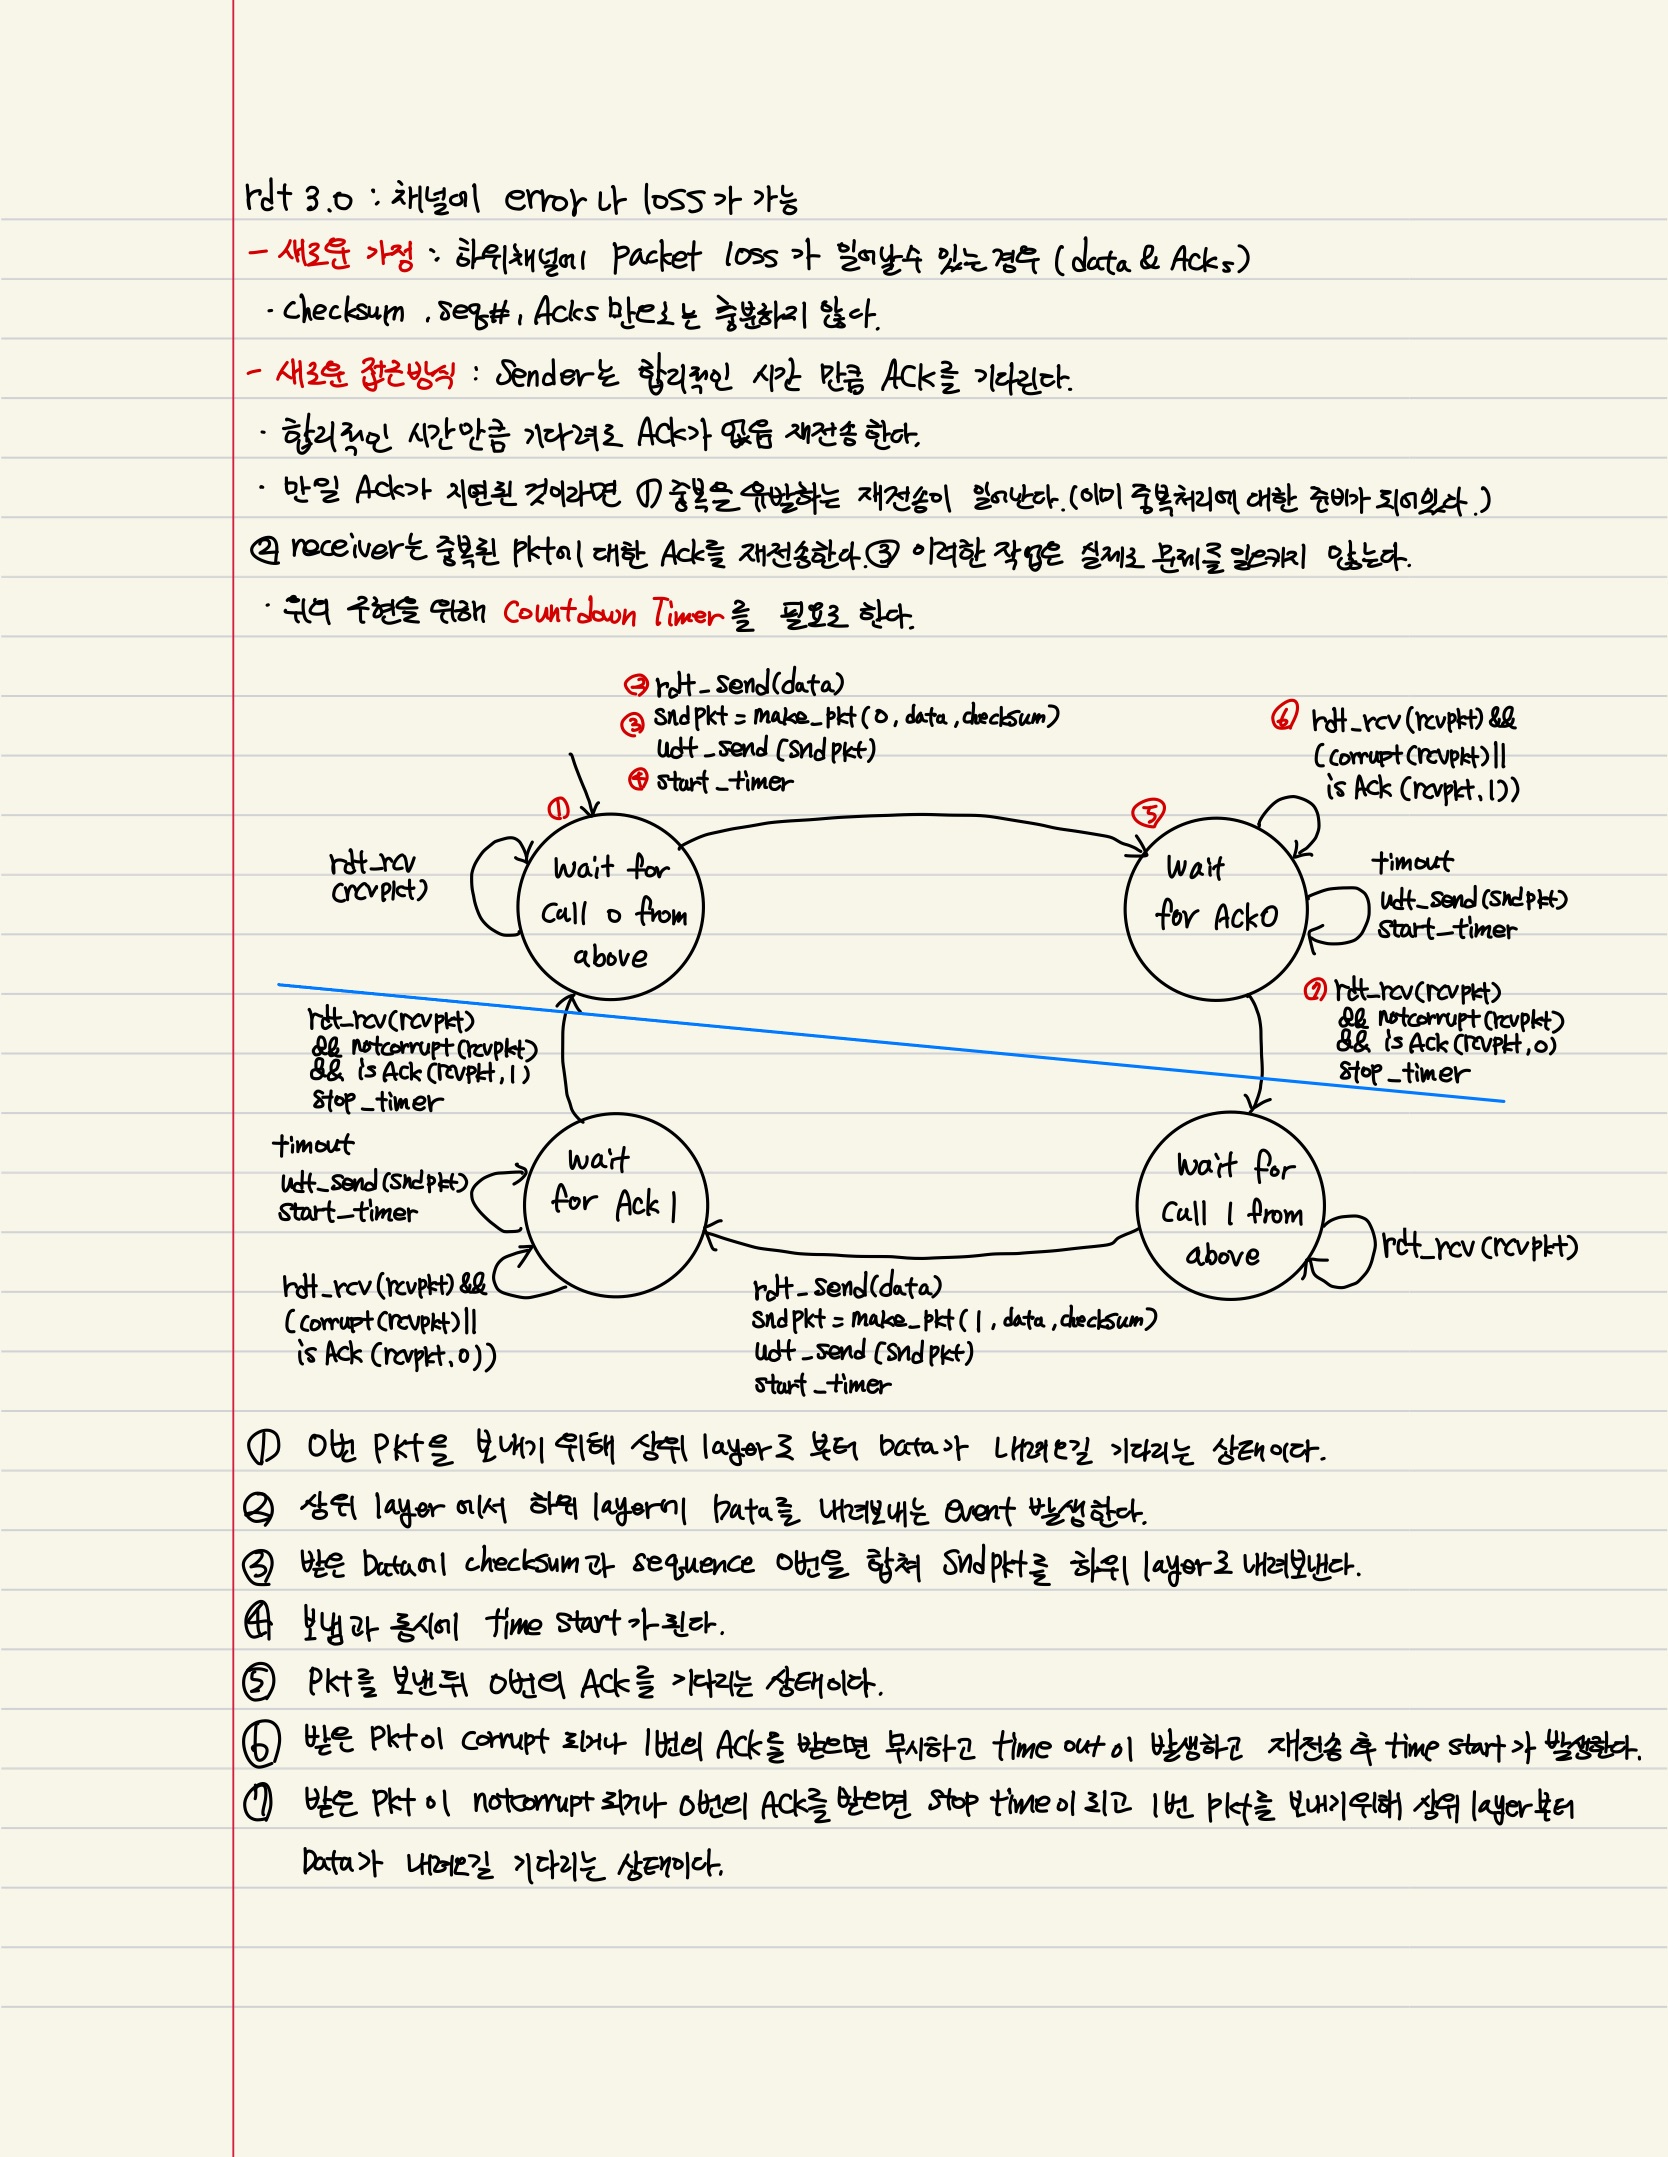 rdt 3.0 : 채널에 error나 loss가 가능
- 새로운 가정 : 하위채널에 packet loss가 일어날수 있는 경우 (data & Acks)
· checksum, seq#, Acks 만으로는 충분하지 않다.
- 새로운 접근방식 : Sender는 합리적인 시간 만큼 ACK를 기다린다.
· 합리적인 시간만큼 기다려도 Ack가 없음 재전송 한다.
· 만일 Ack가 지연된 것이라면 ① 중복을 유발하는 재전송이 일어난다.(이미 중복처리에 대한 준비가 되어있다.)
② receiver는 중복된 pkt에 대한 Ack를 재전송한다.③ 이러한 작업은 실제로 문제를 일으키지 않는다.
· 위의 구현을 위해 Countdown Timer를 필요로 한다.
② rdt_send(data)
③ sndpkt = make_pkt(0, data, checksum)
udt_send(sndpkt)
④ start_timer
⑥ rdt_rcv(rcvpkt) &&
(corrupt(rcvpkt) ||
is Ack (rcvpkt, 1))
①
⑤
rdt_rcv
(rcvpkt)
wait for
call 0 from
above
wait
for Ack0
timout
udt_send(sndpkt)
start_timer
rdt_rcv(rcvpkt)
&& notcorrupt(rcvpkt)
&& is Ack(rcvpkt, 1)
stop_timer
⑦ rdt_rcv(rcvpkt)
&& notcorrupt(rcvpkt)
&& is Ack(rcvpkt, 0)
stop_timer
timout
udt_send(sndpkt)
start_timer
wait
for Ack 1
wait for
call 1 from
above
rdt_rcv(rcvpkt)
rdt_rcv(rcvpkt) &&
(corrupt(rcvpkt) ||
is Ack (rcvpkt, 0))
rdt_send(data)
sndpkt = make_pkt(1, data, checksum)
udt_send(sndpkt)
start_timer
① 0번 pkt을 보내기 위해 상위 layer로 부터 Data가 내려오길 기다리는 상태이다.
② 상위 layer에서 하위 layer에 Data를 내려보내는 event 발생한다.
③ 받은 Data에 checksum과 sequence 0번을 합쳐 sndpkt를 하위 layer로 내려보낸다.
④ 보냄과 동시에 time start가 된다.
⑤ pkt를 보낸뒤 0번의 Ack를 기다리는 상태이다.
⑥ 받은 pkt이 corrupt 되거나 1번의 ACK를 받으면 무시하고 time out이 발생하고 재전송 후 time start가 발생한다.
⑦ 받은 pkt이 notcorrupt 되거나 0번의 ACK를 받으면 stop time이 되고 1번 pkt를 보내기위해 상위 layer부터
Data가 내려오길 기다리는 상태이다.